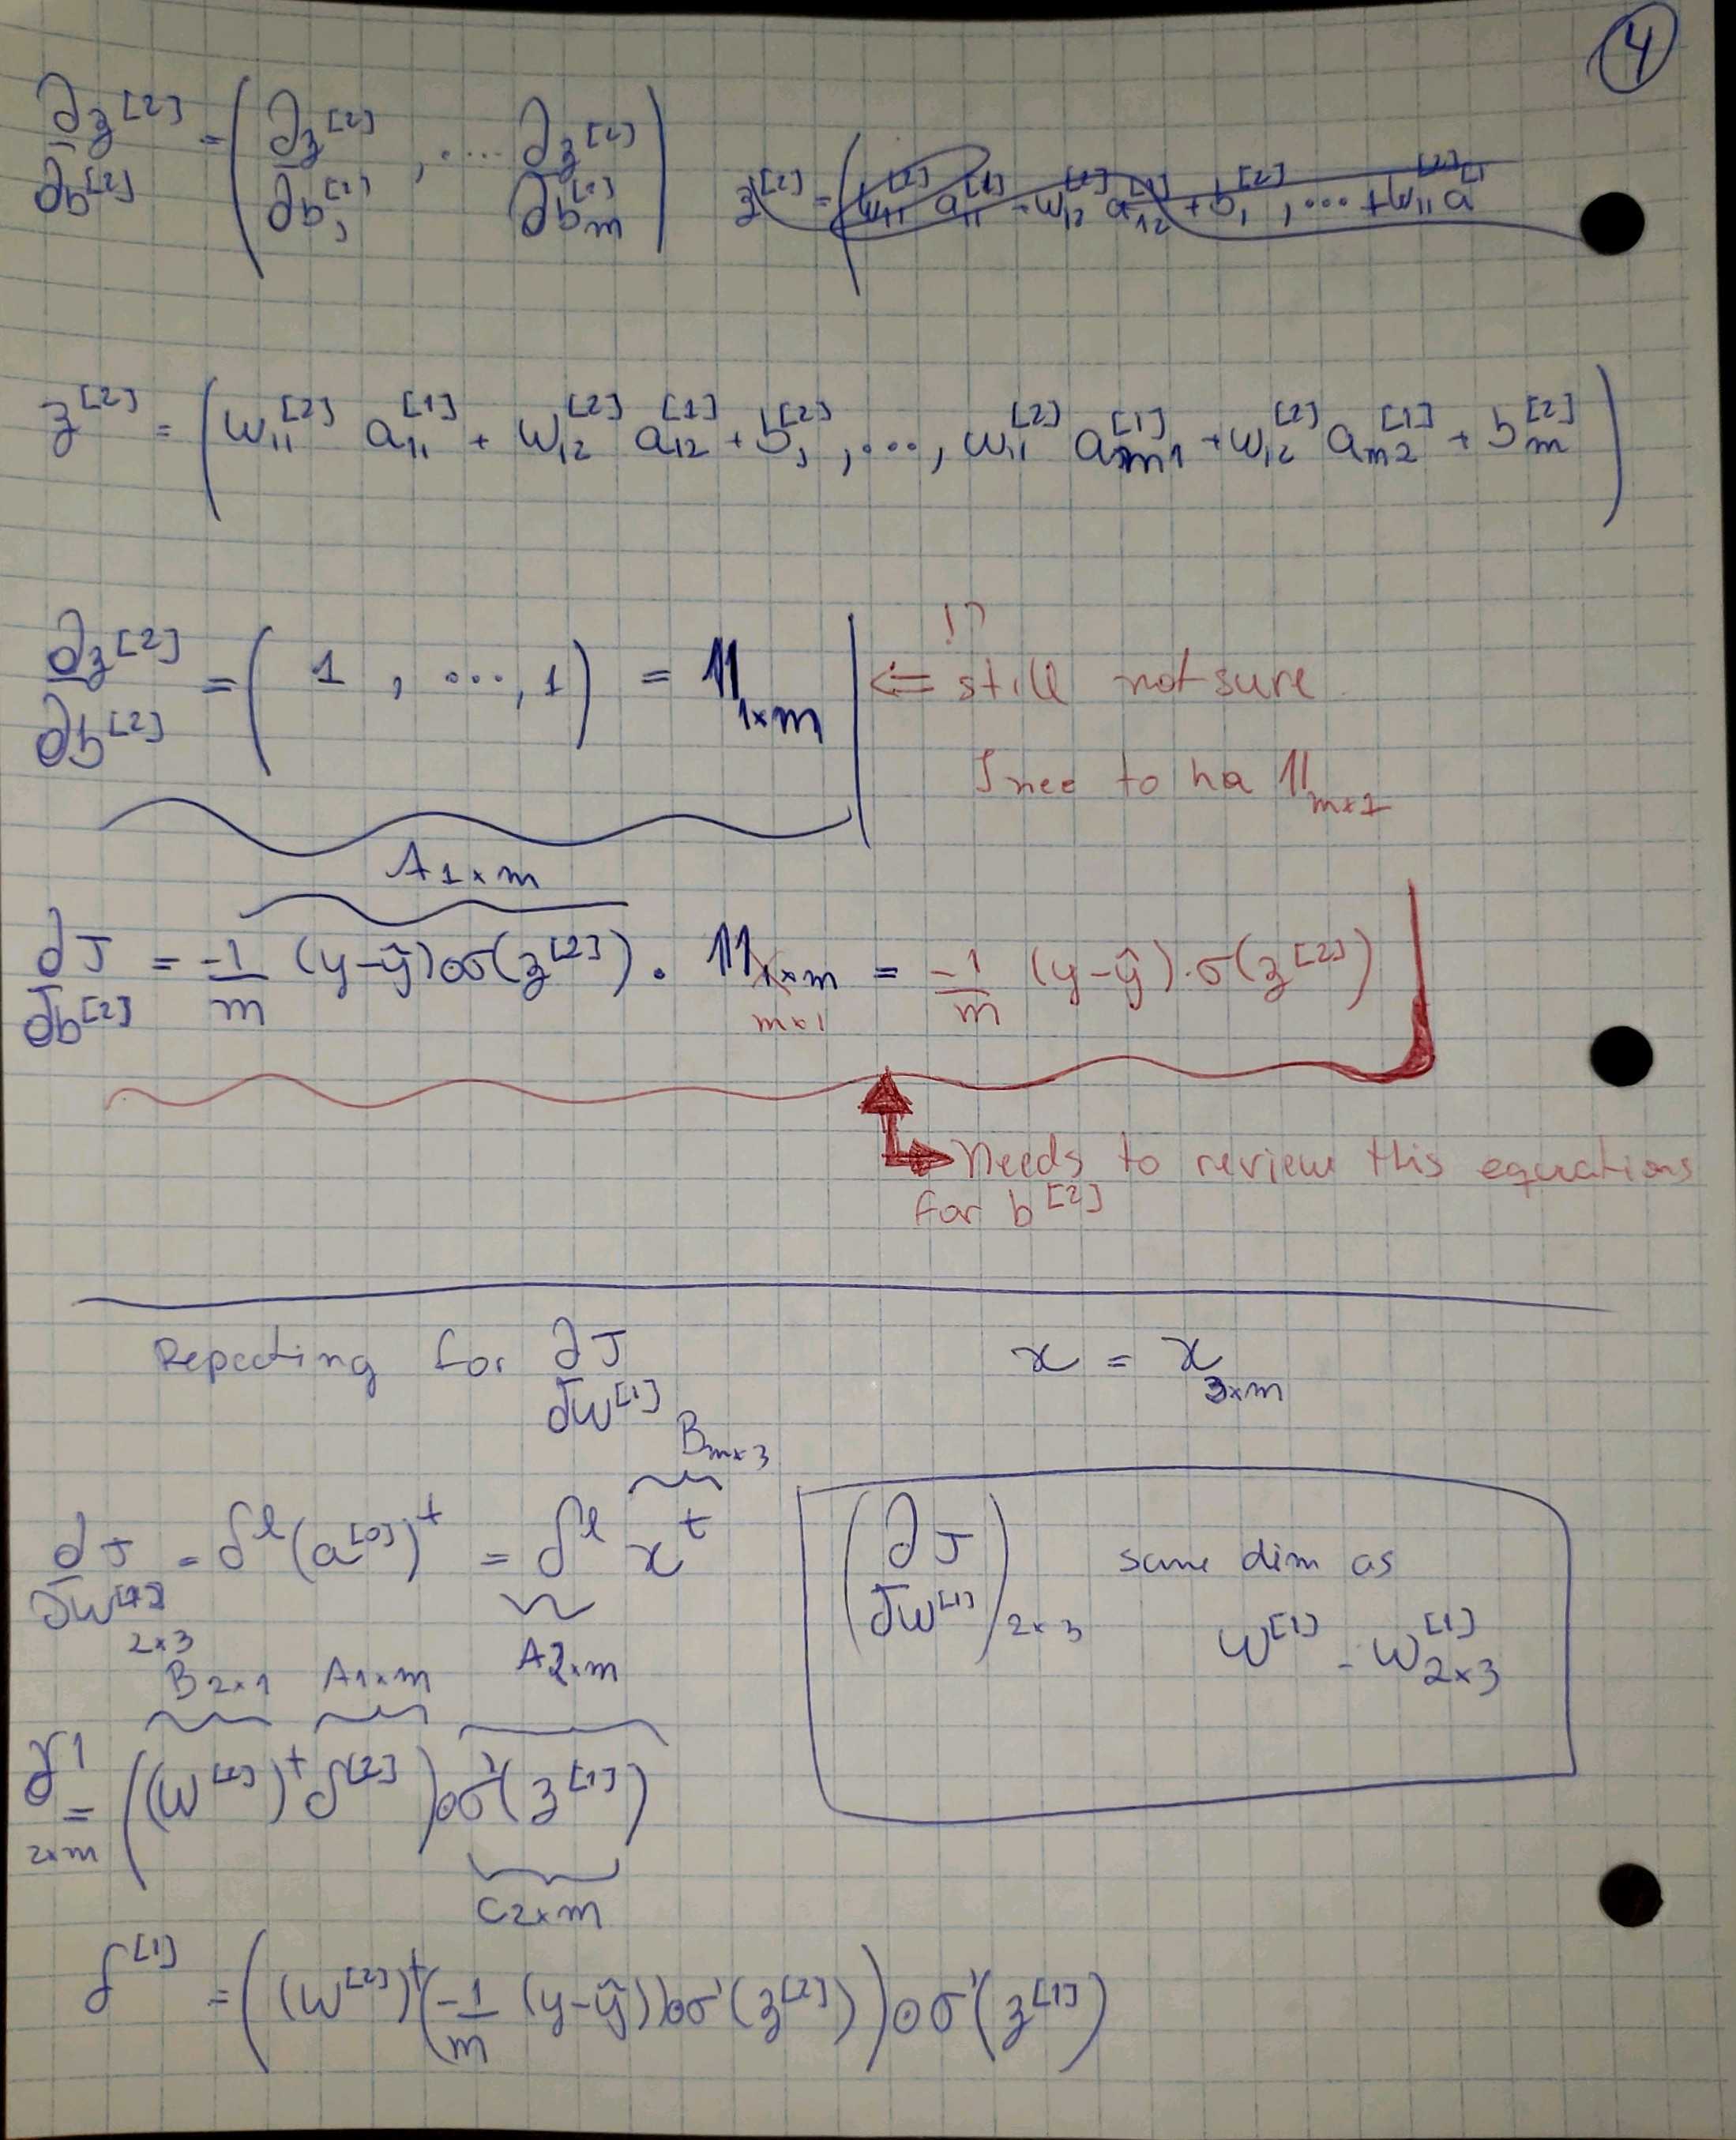 4
∂z^[2]/∂b^[2] = ( ∂z^[2]/∂b_1^[2] , .... ∂z^[2]/∂b_m^[2] )
z^[2] = ( w_11^[2] a_11^[1] + w_12^[2] a_12^[1] + b_1^[2] , ... + w_11 a
z^[2] = ( w_11^[2] a_11^[1] + w_12^[2] a_12^[1] + b_1^[2] , ..., w_11^[2] a_m1^[1] + w_12^[2] a_m2^[1] + b_m^[2] )
!?
∂z^[2]/∂b^[2] = ( 1 , ..., 1 ) = 11_1×m ⇐ still not sure
I nee to ha 11_m×1
A_1×m
∂J/∂b^[2] = -1/m (y-ŷ)⊙σ(z^[2]) . 11_1×m = -1/m (y-ŷ)·σ(z^[2])
m×1
Needs to review this equations
for b^[2]
Repeating for ∂J/∂w^[1] x = x_3×m
B_m×3
∂J/∂w^[1] = δ^l (a^[0])^t = δ^l x^t
2×3
A_2×m
(∂J/∂w^[1])_2×3 same dim as
w^[1] = w_2×3^[1]
B_2×1 A_1×m
δ^1 = ((w^[2])^t δ^[2])⊙σ'(z^[1])
2×m
C_2×m
δ^[1] = ((w^[2])^t(-1/m (y-ŷ))⊙σ'(z^[2]))⊙σ'(z^[1])